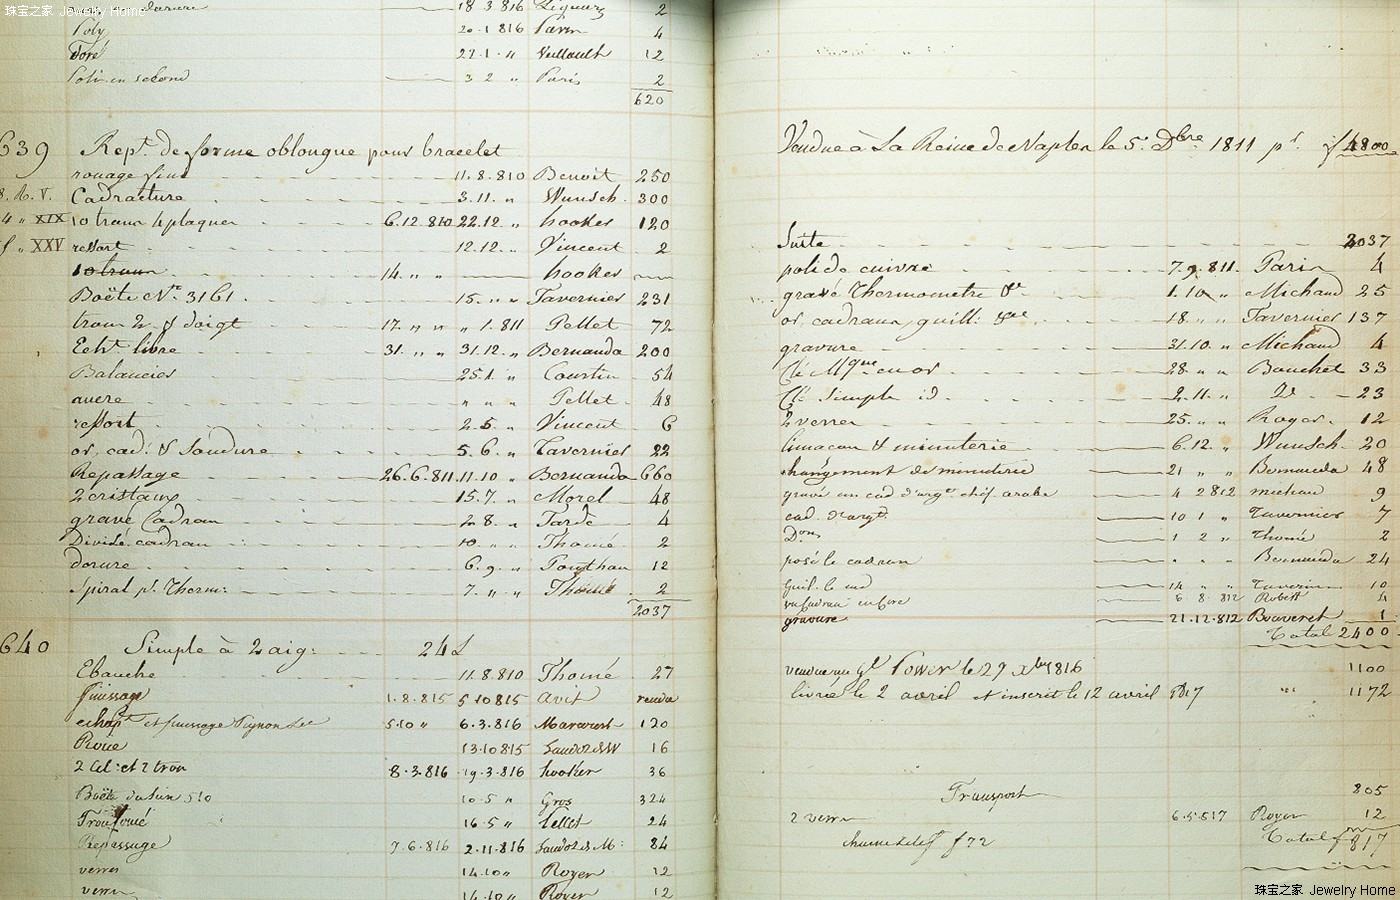 珠宝之家 Jewelry Home
18.3.816 2
Poly 20.1.816 4
Doré 27.1. " 12
Poli en second 3 2 " Paris 2
620
639 Rept. de forme oblongue pour bracelet
rouage fini 11.8.810 Benoit 250
Cadrature 3.11. " Wunsch. 300
XIX 10 trous 4 plaques 6.12.810 22.12. " hooker 120
XXV ressort 12.12. " Vincent 2
10 trous 14. " " hooker
Boëte No. 3161. 15. " " Tavernier 231
trous 2 & doigt 17. " " " 1.811 Pellet 72
Echt. libre 31. " " 31.12. " Bernauda 200
Balancier 25.1. " Courtin 54
" " " Pellet 48
ressort 2.5. " Vincent 6
or, cad. & Soudure 5.6. " Tavernier 22
Repassage 26.6.811. 11.10 " Bernauda 660
2 cristaux 15.7. " Morel 48
gravé Cadran 2.8. " Tardé 4
Divisé cadran 10. " " Thomé 2
dorure 6.9. " Pouthau 12
Spiral pr. Therm: 7. " " Thomé 2
2037
640 Simple à 2 aig: 24
Ebauche 11.8.810 Thomé 27
finissage 1.8.815 5 10 815 Avit rendu
echapt et finissage Pignon 5.10 " 6.3.816 120
Roue 13.10 815 16
2 Cel: et 2 trou 8.3.816 19.3.816 hooker 36
Boëte 510 10.5 " Gros 324
16.5 " Pellet 24
Repassage 7.6.816 2.11.816 84
verres 14.10 " Royer 12
verres 14.10 " Royer 12
Vendue à La Reine de Naples le 5. Dbre 1811 pr. f 4800
Suite 2037
poli de cuivre 7.9.811. Paris 4
gravé Thermometre & 1.10 " Michaud 25
or, cadrans, guill. &ca 18. " " Tavernier 137
gravure 31.10. " Michaud 4
Clé Mque en or 28. " " Bouchet 33
Clé Simple id. 2.11. " 23
2 verres 25. " " Roger. 12
limaçon & minuterie 6.12. " Wunsch. 20
changement de minuterie 21 " " Bernauda 48
gravé un cad d'argt. chif. arabe 4 2 812 michaud 9
cad. d'argt. 10 1 " Tavernier 7
1 2 " Thomé 2
posé le cadran " " " Bernauda 24
Guil. le cad 14 " " Tavernier 10
6 8 812 Robert 4
gravure 21.12.812 Bouveret 1
Total 2400
vendue au Gl. Power le 29 Xbre 1816 1100
livrée le 2 avril et inscrit le 12 avril 1817 1172
Transport 805
2 verres 6.5.817 Royer 12
f 72 Total f 817
珠宝之家 Jewelry Home